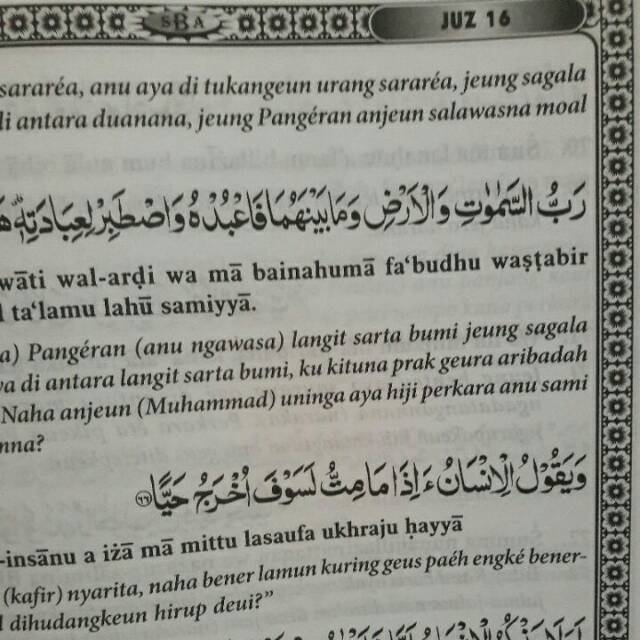 SBA JUZ 16
sararéa, anu aya di tukangeun urang sararéa, jeung sagala
di antara duanana, jeung Pangéran anjeun salawasna moal
رَبُّ السَّمٰوٰتِ وَالْاَرْضِ وَمَا بَيْنَهُمَا فَاعْبُدْهُ وَاصْطَبِرْ لِعِبَادَتِهٖۗ
wāti wal-arḍi wa mā bainahumā fa‘budhu waṣṭabir
ta‘lamu lahū samiyyā.
a) Pangéran (anu ngawasa) langit sarta bumi jeung sagala
di antara langit sarta bumi, ku kituna prak geura aribadah
Naha anjeun (Muhammad) uninga aya hiji perkara anu sami
nna?
وَيَقُوْلُ الْاِنْسَانُ ءَاِذَا مَا مِتُّ لَسَوْفَ اُخْرَجُ حَيًّا ٦٦
-insānu a iżā mā mittu lasaufa ukhraju ḥayyā
(kafir) nyarita, naha bener lamun kuring geus paéh engké bener-
dihudangkeun hirup deui?”